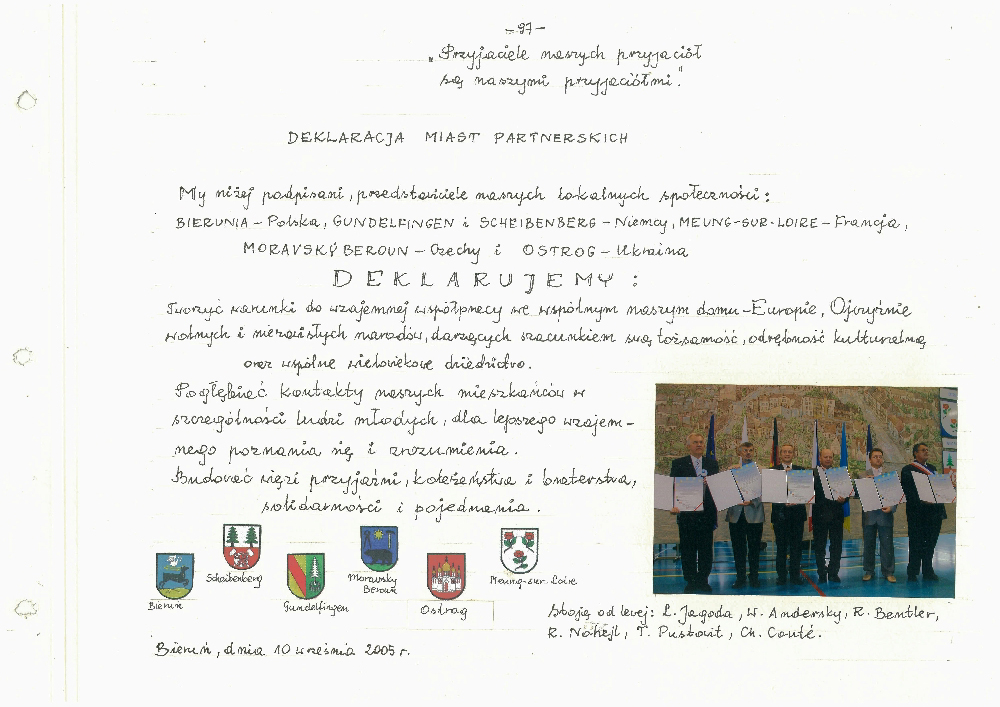 - 97 -
„Przyjaciele naszych przyjaciół
są naszymi przyjaciółmi".
DEKLARACJA MIAST PARTNERSKICH
My niżej podpisani, przedstawiciele naszych lokalnych społeczności:
BIERUNIA - Polska, GUNDELFINGEN i SCHEIBENBERG - Niemcy, MEUNG-SUR-LOIRE - Francja,
MORAVSKÝ BEROUN - Czechy i OSTROG - Ukraina
DEKLARUJEMY:
Tworzyć warunki do wzajemnej współpracy we wspólnym naszym domu - Europie, Ojczyźnie
wolnych i niezawisłych narodów, darzących szacunkiem swą tożsamość, odrębność kulturalną
oraz wspólne wielowiekowe dziedzictwo.
Pogłębiać kontakty naszych mieszkańców w
szczególności ludzi młodych, dla lepszego wzajem-
nego poznania się i zrozumienia.
Budować więzi przyjaźni, koleżeństwa i braterstwa,
solidarności i pojednania.
Bieruń
Scheibenberg
Gundelfingen
Moravsky
Beroun
Ostrog
Meung-sur-Loire
Stoją od lewej: L. Jagoda, W. Andersky, R. Bentler,
R. Nohejl, T. Pustovit, Ch. Conté.
Bieruń, dnia 10 września 2005 r.